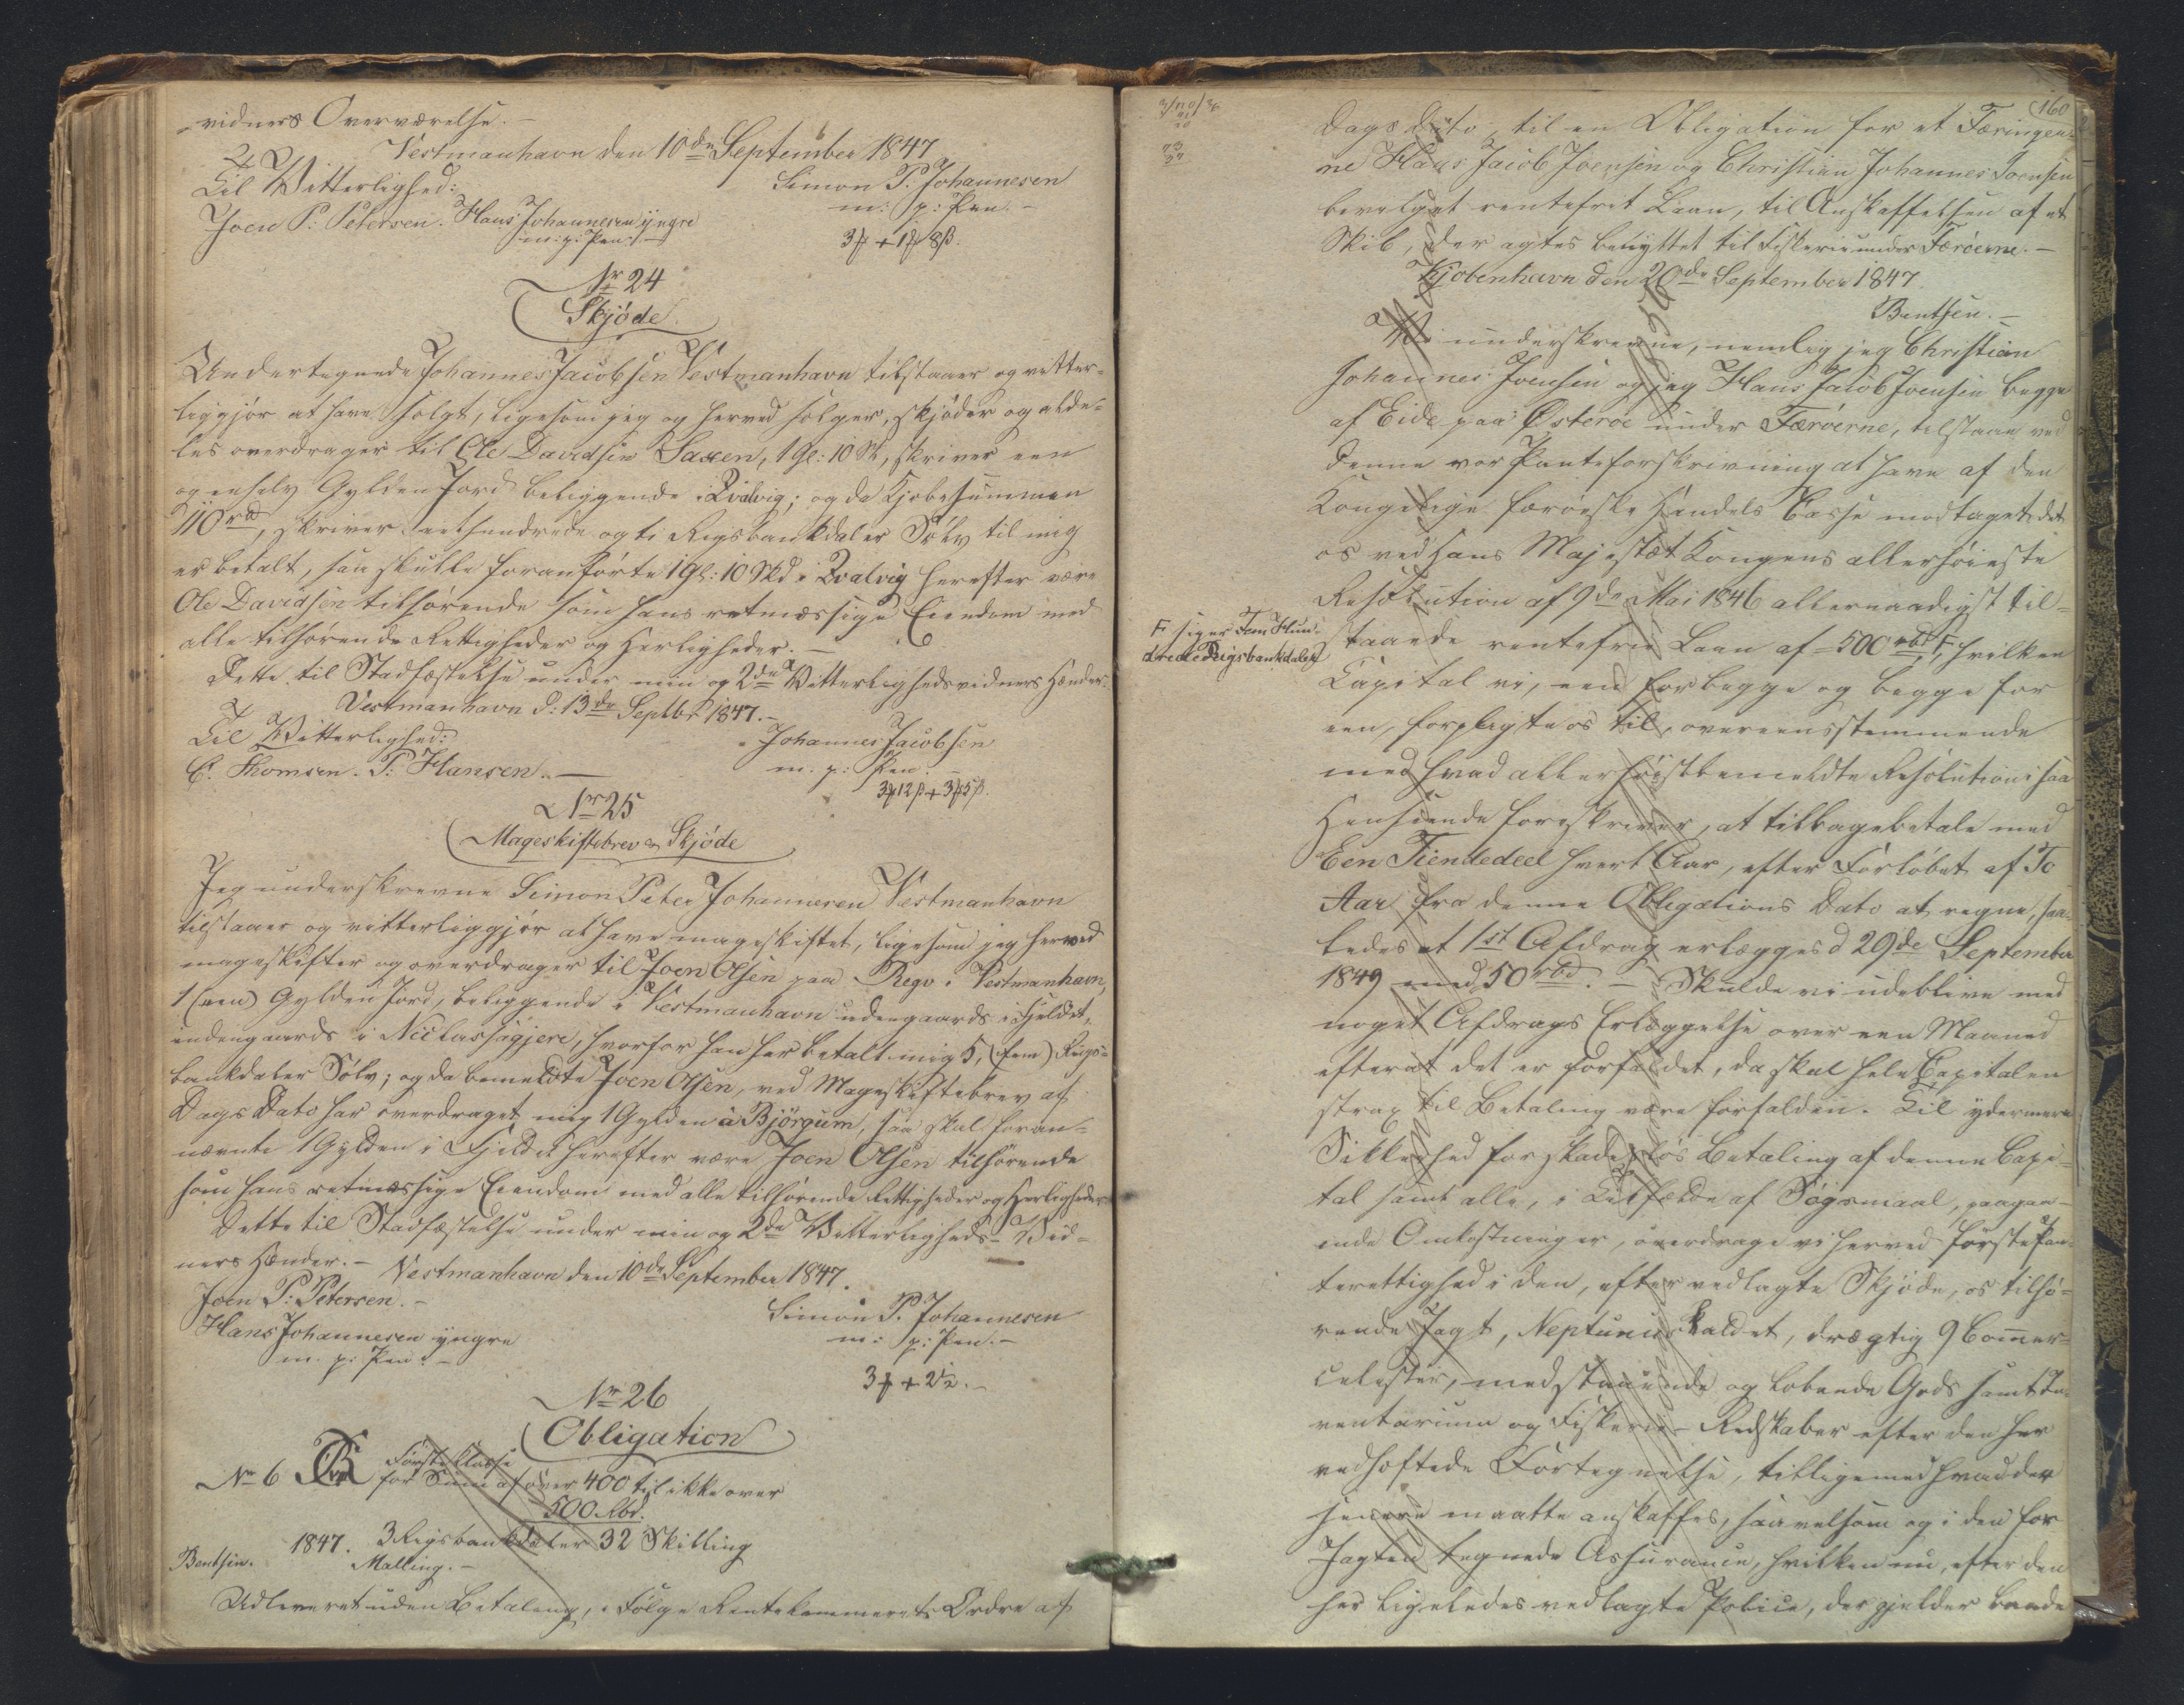 -vidners Overværelse. -
Vestmanhavn den 10de September 1847
Til Vitterlighed:
Simon P. Johannesen
Joen P: Petersen. Hans Johannesen yngre
m: p: Pen. -
m: p: Pen. -
Nr 24
Skjöde.
Undertegnede Johannes Jacobsen Vestmanhavn tilstaaer og vitter-
liggjör at have solgt, ligesom jeg og herved sælger, skjöder og alde-
les overdrager til Ole Davidsen Saxen, 1 Gl: 10 Sk, skriver een
og en halv Gylden Jord beliggende i Qvalvig; og da Kjöbesummen
110 rd, skriver eethundrede og ti Rigsbankdaler Sölv til mig
er betalt, saa skulle foranförte 1 Gl: 10 Skd i Qvalvig herefter være
Ole Davidsen tilhörende som hans retmæssige Eiendom med
alle tilhörende Rettigheder og Herligheder. -
Dette til Stadfæstelse under min og 2de Vitterlighedsvidners Hænder.
Vestmanhavn d: 13de Septbr 1847. -
Til Vitterlighed:
Johannes Jacobsen
C. Thomsen. P: Hansen. -
m. p: Pen.
3ꝑ12β+3ꝑ5β.
Nr 25
Mageskiftebrev og Skjöde
Jeg underskrevne Simon Peter Johannesen Vestmanhavn
tilstaaer og vitterliggjör at have mageskiftet, ligesom jeg herved
mageskifter og overdrager til Joen Olsen paa Rego i Vestmanhavn,
1 (een) Gylden Jord, beliggende i Vestmanhavn udengaards i Fjeldet,
indengaards i Niclasagjere, hvorfor han har betalt mig 5, (fem) Rigs-
bankdaler Sölv; og da bemeldte Joen Olsen, ved Mageskiftebrev af
Dags Dato har overdraget mig 1 Gylden à Björgum, saa skal foran-
nævnte 1 Gylden i Fjeldet herefter være Joen Olsen tilhörende
som hans retmæssige Eiendom med alle tilhörende Rettigheder og Herligheder
Dette til Stadfæstelse under min og 2de Vitterligheds-Vid-
ners Hænder. - Vestmanhavn den 10de September 1847.
Joen P: Petersen. -
Simon P. Johannesen
Hans Johannesen yngre
m: p: Pen. -
m. p: Pen. -
Nr 26
Obligation
Nr 6 Förste Klasse
for Sum af over 400 til ikke over
500 Rbd.
1847. 3 Rigsbankdaler 32 Skilling
Bentsen. Malling. -
Udleveret uden Betaling, i Fölge Rentekammerets Ordre af
160
Dags Dato, til en Obligation for et Færingen-
ne Hans Jacob Joensen og Christian Johannes Joensen
bevilget rentefrit Laan, til Anskaffelsen af et
Skib, der agtes benyttet til Fiskerie under Færöerne. -
Kjöbenhavn den 20de September 1847.
Bentsen. -
Vi underskrevne, nemlig jeg Christian
Johannes Joensen og jeg Hans Jacob Joensen begge
af Eide paa Österöe under Færöerne, tilstaae ved
denne vor Panteforskrivning at have af den
Kongelige færöeske Handels Casse modtaget det
os ved Hans Majestæt Kongens allerhöieste
Resolution af 9de Mai 1846 allernaadigst til-
F siger Fem Hun-
drede Rigsbankdaler
staaede rentefrie Laan af - 500 rbd F, hvilken
Capital vi, een for begge og begge for
een, forpligte os til, overeensstemmende
med hvad allerhöistbemeldte Resolution i saa
Henseende foreskriver, at tilbagebetale med
Een Tiendedeel hvert Aar, efter Forlöbet af To
Aar fra denne Obligations Dato at regne, saa-
ledes at 1st Afdrag erlægges d 29de September
1849 med 50 rbd. - Skulde vi udeblive med
noget Afdrags Erlæggelse over een Maaned
efterat det er forfaldet, da skal hele Capitalen
strax til Betaling være forfalden. Til ydermere
Sikkerhed for skadeslös Betaling af denne Capi-
tal samt alle, i Tilfælde af Sögsmaal, paagaa-
ende Omkostninger, overdrage vi herved förste Pan-
terettighed i den, efter vedlagte Skjöde, os tilhö-
rende Jagt, Neptunus kaldet, drægtig 9 Commer-
celæster, med staaende og löbende Gods samt In-
ventarium og Fiskerie-Redskaber efter den her
vedhæftede Fortegnelse, tilligemed hvad der
senere maatte anskaffes, saavelsom og i den for
Jagten tegnede Assurance, hvilken nu, efter den
her ligeledes vedlagte Police, der gjelder baade